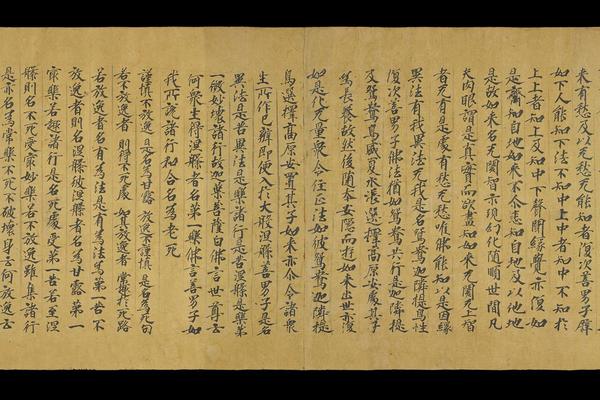 來有愁及以无愁能知如者復次善男子辟
如下人能知下法不知中上中者知中不知於
上上者知上及知中下聲聞緣覺亦復如
是齊知自地如來不尒悉知自地及以他地
是故如來名无閡智示現幻化隨順世間凡
夫肉眼謂是真實而欲盡知如來无閡无上智
者无有是處有愁无愁唯佛能知以是因緣
異法有我異法无我是名鴛鴦迦隣提鳥性
復次善男子佛法猶如鴛鴦共行是迦隣提
及鴛鴦鳥盛夏水漲選擇高原安處其子
為長養故然後隨本安隱而遊如來出世亦復
如是化无量衆令住正法如彼鴛鴦迦隣提
鳥選擇高原安置其子如來亦尒令諸衆
生所作已辦即便入於大般涅槃善男子是名
異法是苦異法是樂諸行是苦涅槃是樂第
一微妙壞諸行故迦葉菩薩白佛言世尊云
何衆生得涅槃者名第一樂佛言善男子如
我所說諸行和合名為老死
謹慎不放逸 是名為甘露 放逸不謹慎 是名為死句
若不放逸者 則得不死處 如其放逸者 常趣於死路
若放逸者名有為法是有為法為第一苦不
放逸者則名涅槃彼涅槃者名為甘露第一
冣樂若趣諸行是名死處受第一苦若至涅
槃則名不死受冣妙樂若不放逸雖集諸行
是亦名為常樂不死不破壞身云何放逸云